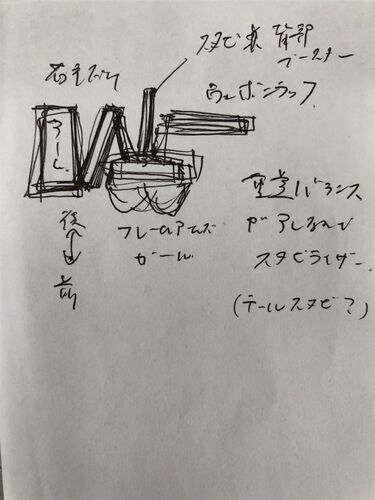 スタビ兼 背部
ブースター
ウェポンラック
アーム
後
前
フレームアームズ
ガール
重量バランス
がアレなんで
スタビライザー
(テールスタビ?)